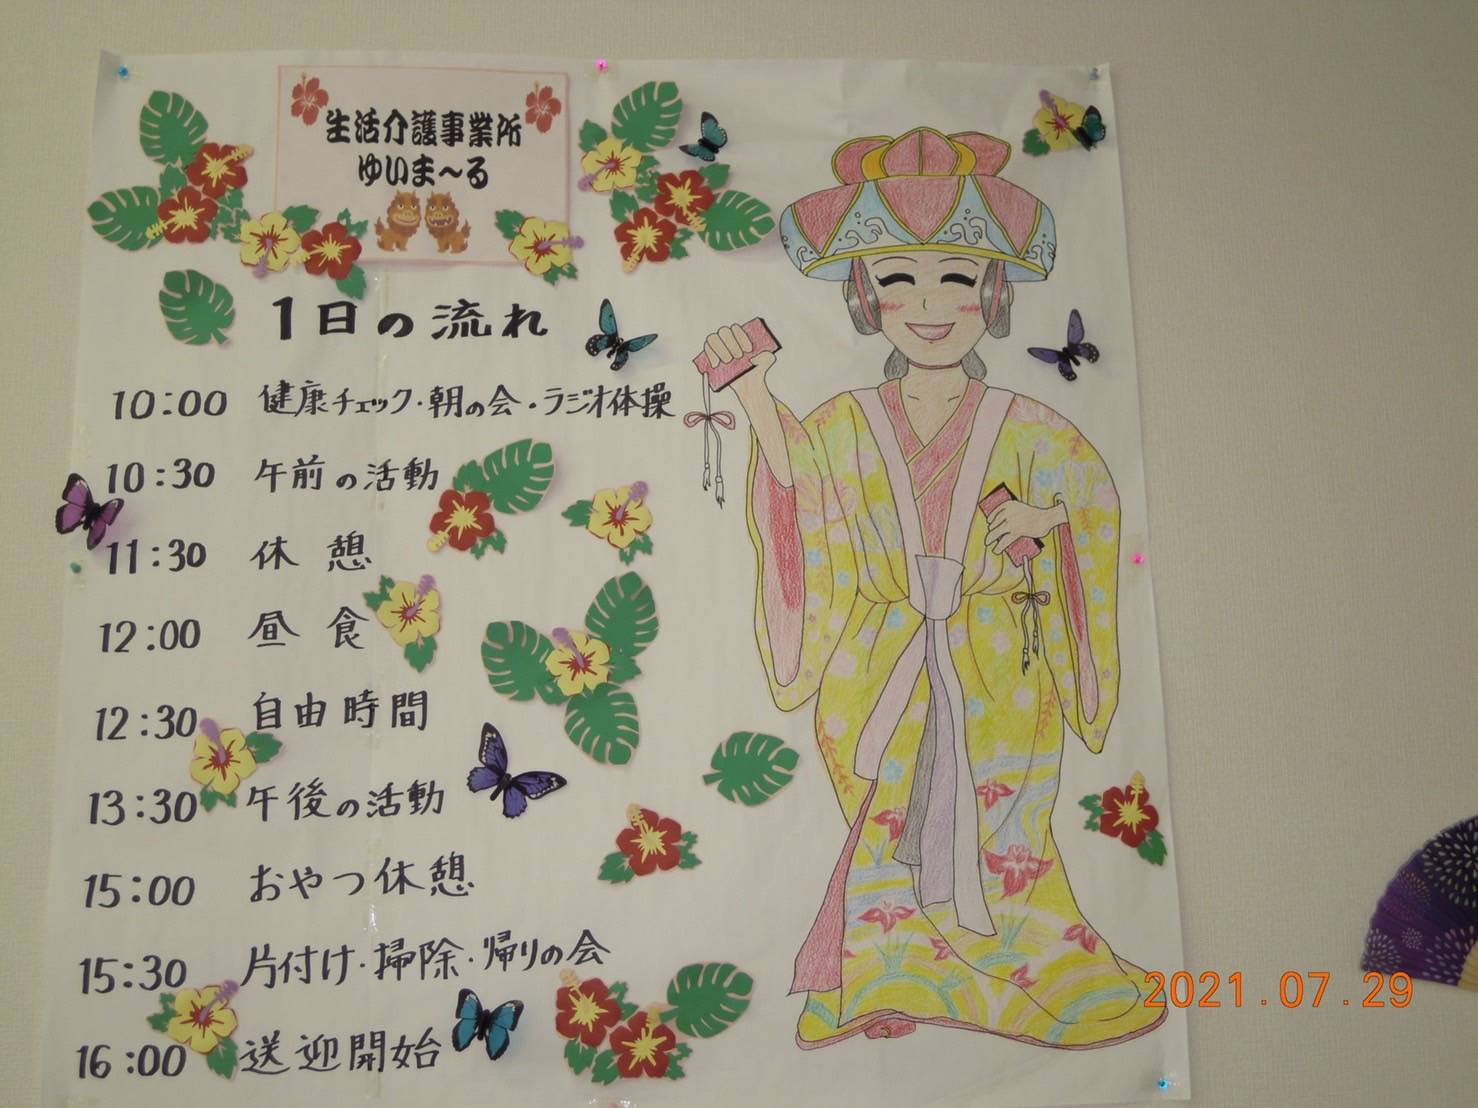 生活介護事業所
ゆいま～る
1日の流れ
10:00 健康チェック・朝の会・ラジオ体操
10:30 午前の活動
11:30 休憩
12:00 昼食
12:30 自由時間
13:30 午後の活動
15:00 おやつ休憩
15:30 片付け・掃除・帰りの会
16:00 送迎開始
2021.07.29